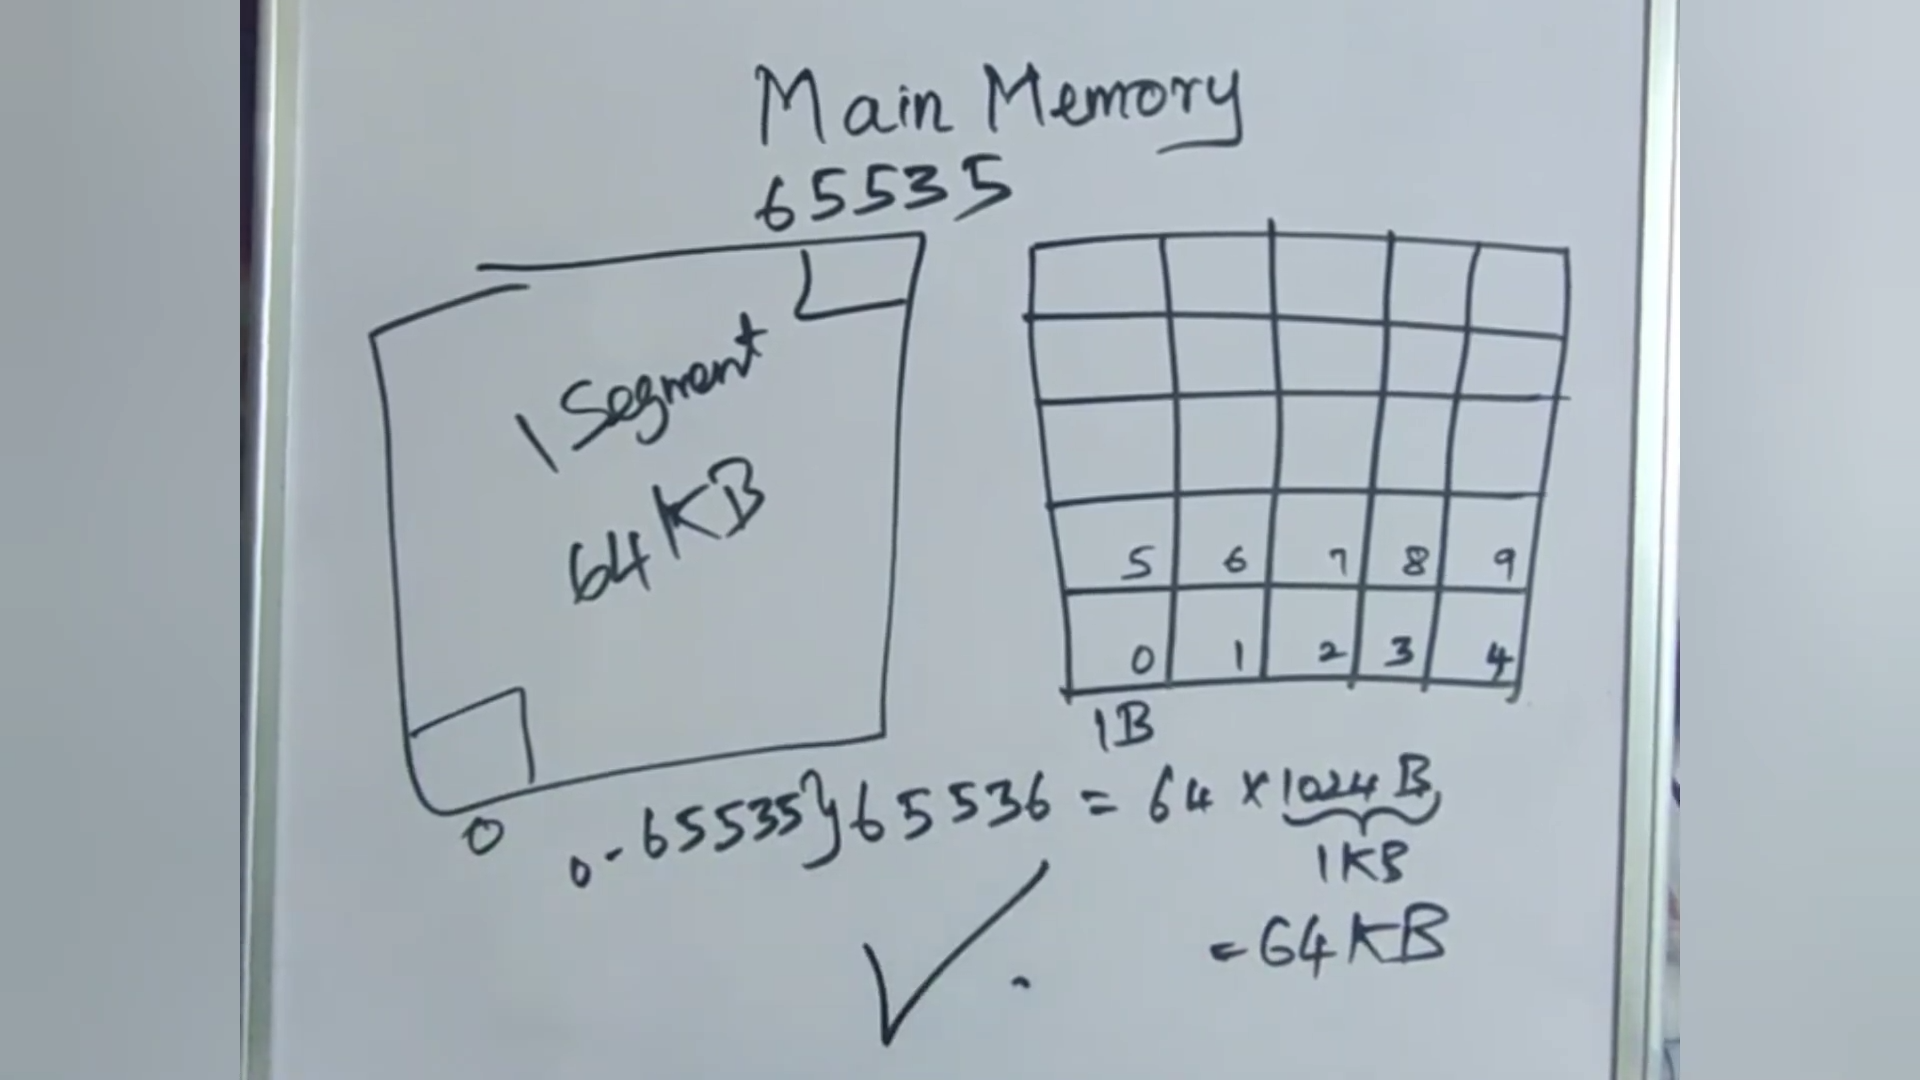 Main Memory
65535
1 Segment
64 KB
0
5 6 7 8 9
0 1 2 3 4
1B
0 - 65535} 65536 = 64 × 1024 B
1KB
= 64 KB